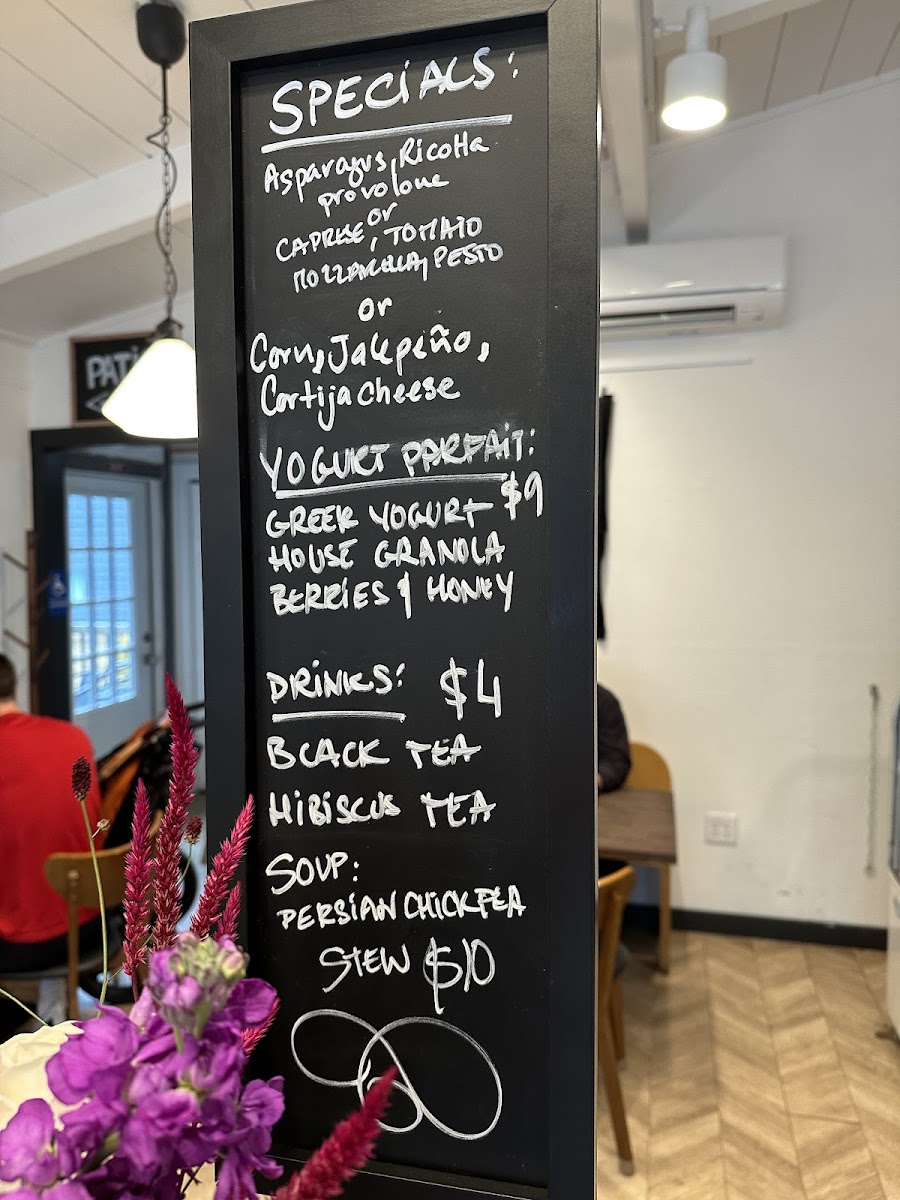 SPECIALS:
Asparagus, Ricotta
provolone
or
CAPRESE, TOMATO
MOZZARELLA, PESTO
or
Corn, Jalepeño,
Cortija cheese
YOGURT PARFAIT:
$9
GREEK YOGURT
HOUSE GRANOLA
BERRIES & HONEY
DRINKS: $4
BLACK TEA
HIBISCUS TEA
SOUP:
PERSIAN CHICKPEA
STEW $10